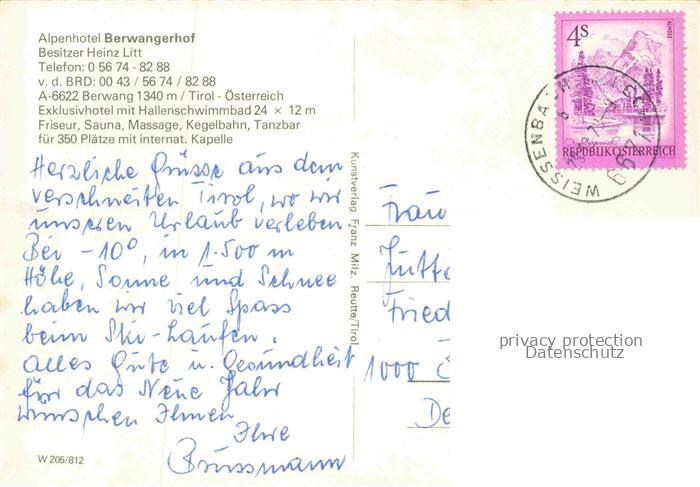 Alpenhotel Berwangerhof
Besitzer Heinz Litt
Telefon: 0 56 74 - 82 88
v. d. BRD: 00 43 / 56 74 / 82 88
A-6622 Berwang 1340 m / Tirol - Österreich
Exklusivhotel mit Hallenschwimmbad 24 × 12 m
Friseur, Sauna, Massage, Kegelbahn, Tanzbar
für 350 Plätze mit internat. Kapelle
Herzliche Grüsse aus dem
verschneiten Tirol, wo wir
unseren Urlaub verleben.
Bei -10°, in 1.500 m
Höhe, Sonne und Schnee
haben wir viel Spass
beim Ski-Laufen.
Alles Gute u. Gesundheit
für das Neue Jahr
wünschen Ihnen
Ihre
Brussmann
W 205/812
Kunstverlag Franz Milz, Reutte/Tirol
4S
ALMSEE
REPUBLIK ÖSTERREICH
WEISSENBACH
6671
Frau
Jutta
Fried
1000
privacy protection
Datenschutz